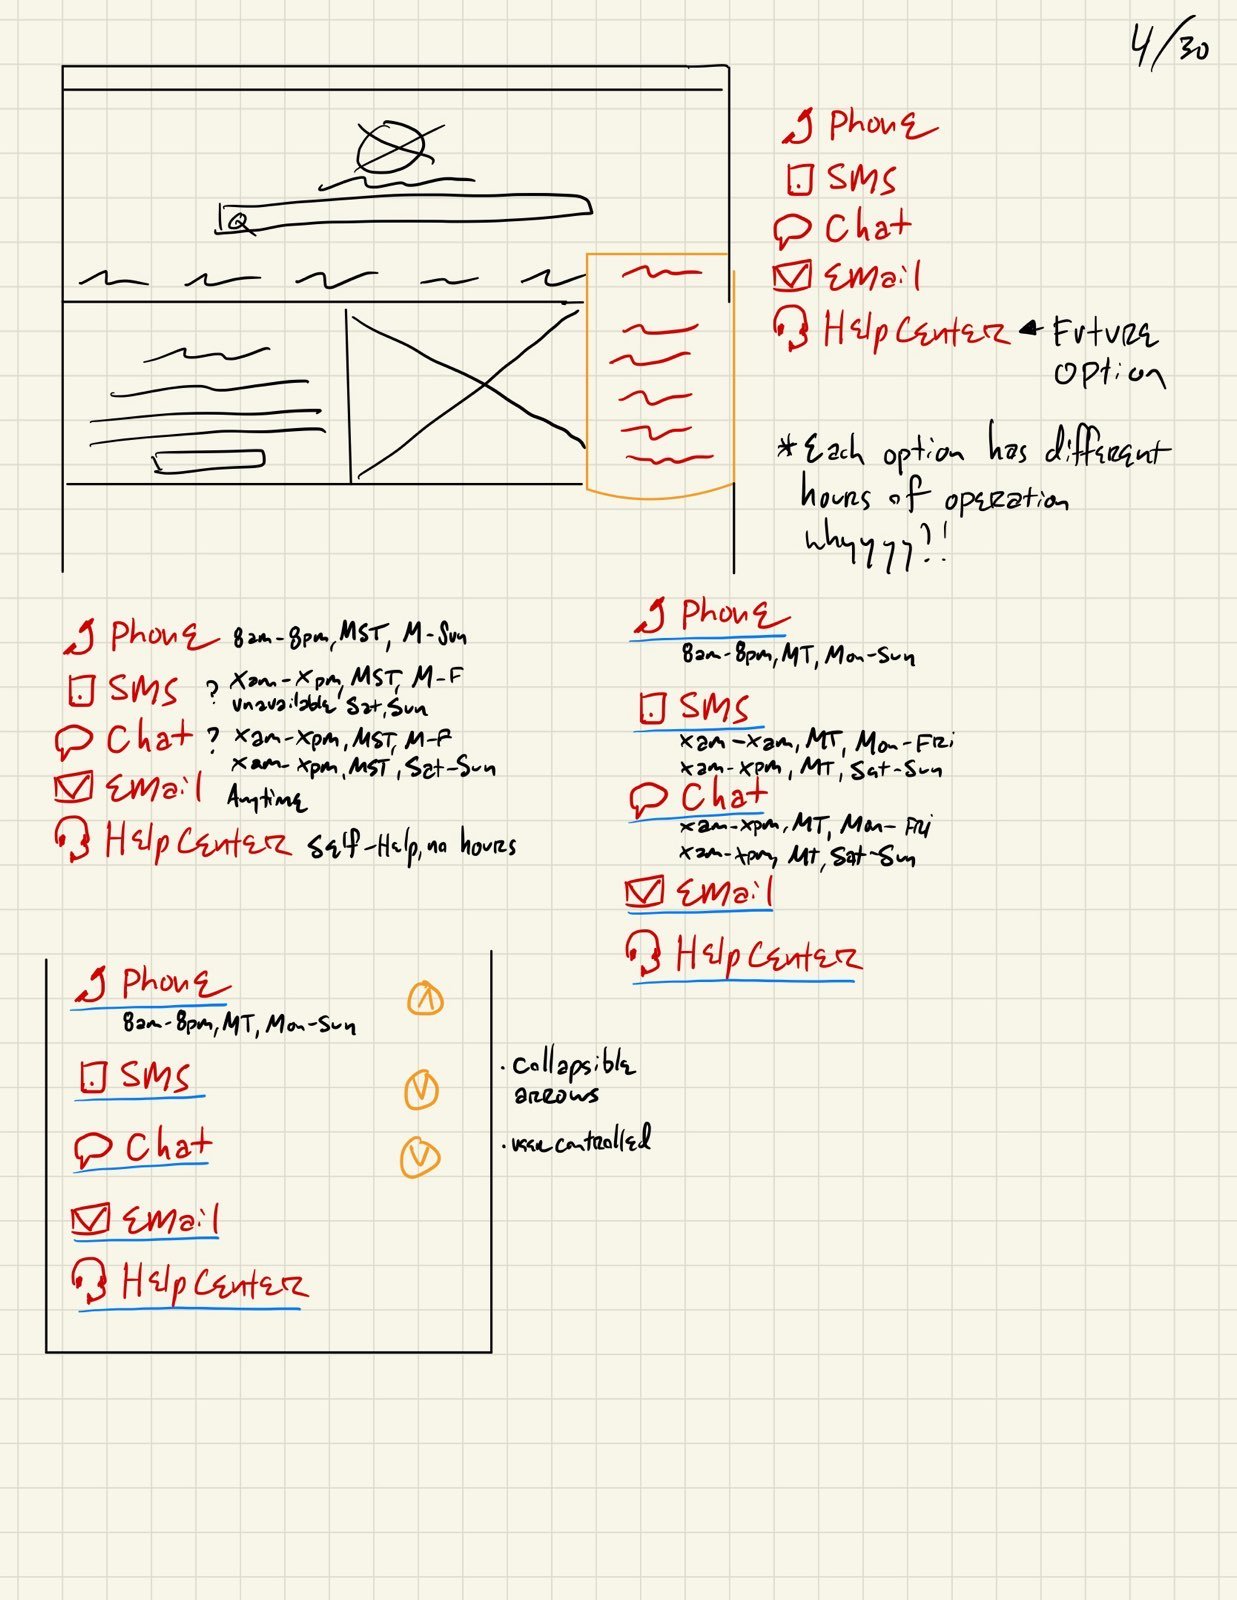 4/30
Phone
SMS
Chat
Email
Help Center ◄ Future
option
*Each option has different
hours of operation
whyyyy?!
Phone 8am-8pm, MST, M-Sun
SMS ? Xam-Xpm, MST, M-F
unavailable Sat, Sun
Chat ? Xam-Xpm, MST, M-F
Xam-Xpm, MST, Sat-Sun
Email Anytime
Help Center Self-Help, no hours
Phone
8am-8pm, MT, Mon-Sun
SMS
Xam-Xam, MT, Mon-Fri
Xam-Xpm, MT, Sat-Sun
Chat
Xam-Xpm, MT, Mon-Fri
Xam-Xpm, MT, Sat-Sun
Email
Help Center
Phone
8am-8pm, MT, Mon-Sun
SMS
Chat
Email
Help Center
· Collapsible
arrows
· user controlled